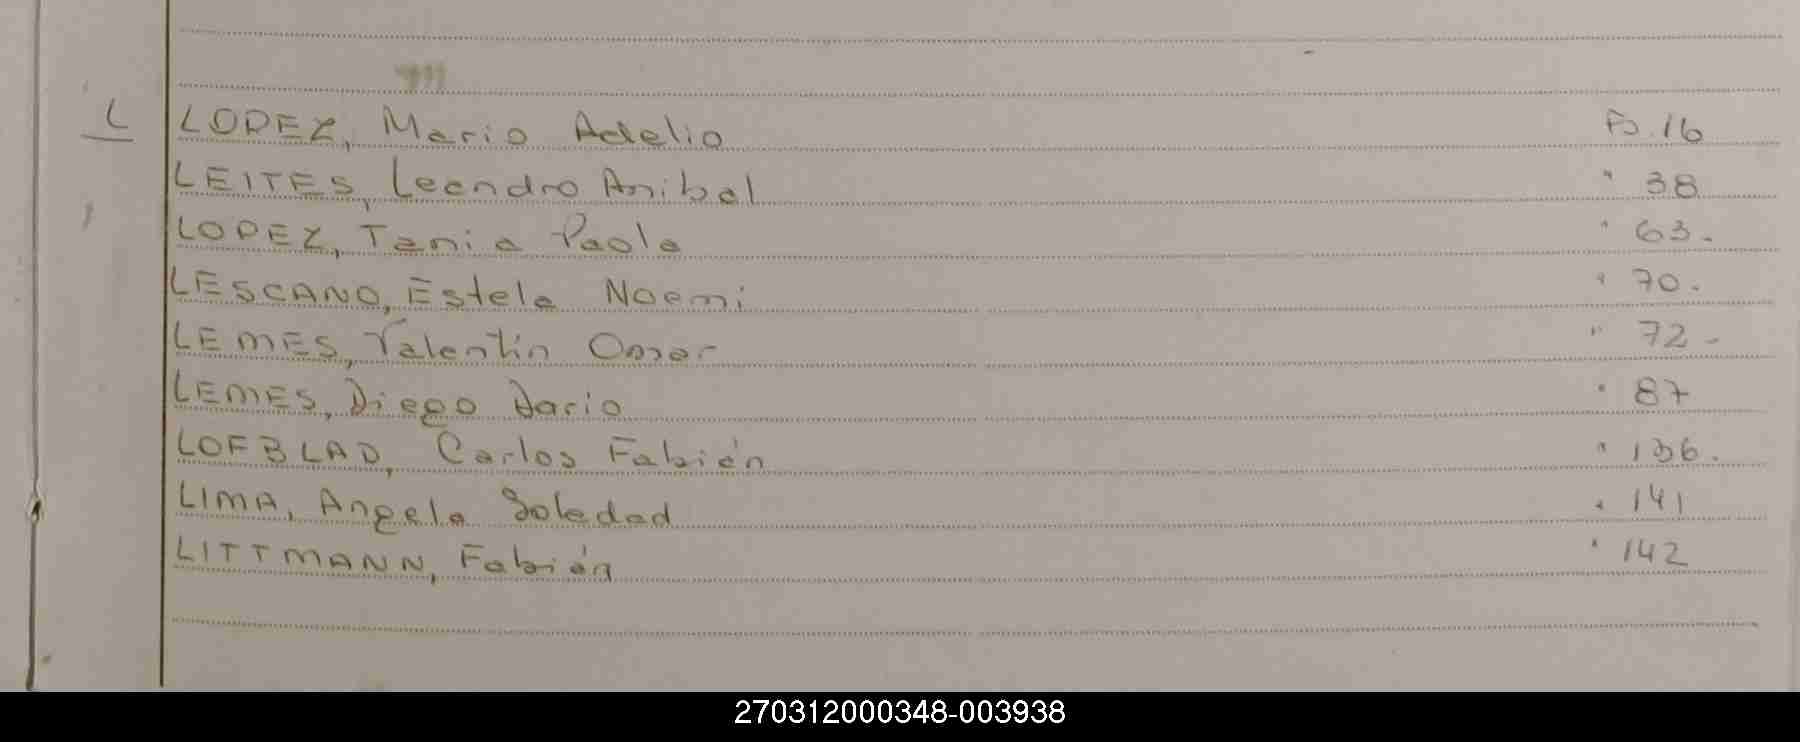 L LOPEZ, Mario Adelio Fs. 16
LEITES, Leandro Anibal " 38
LOPEZ, Tania Paola " 63.
LESCANO, Estela Noemi " 70.
LEMES, Valentin Omar " 72-
LEMES, Diego Dario " 87
LOFBLAD, Carlos Fabián " 136.
LIMA, Angela Soledad " 141
LITTMANN, Fabián " 142
270312000348-003938